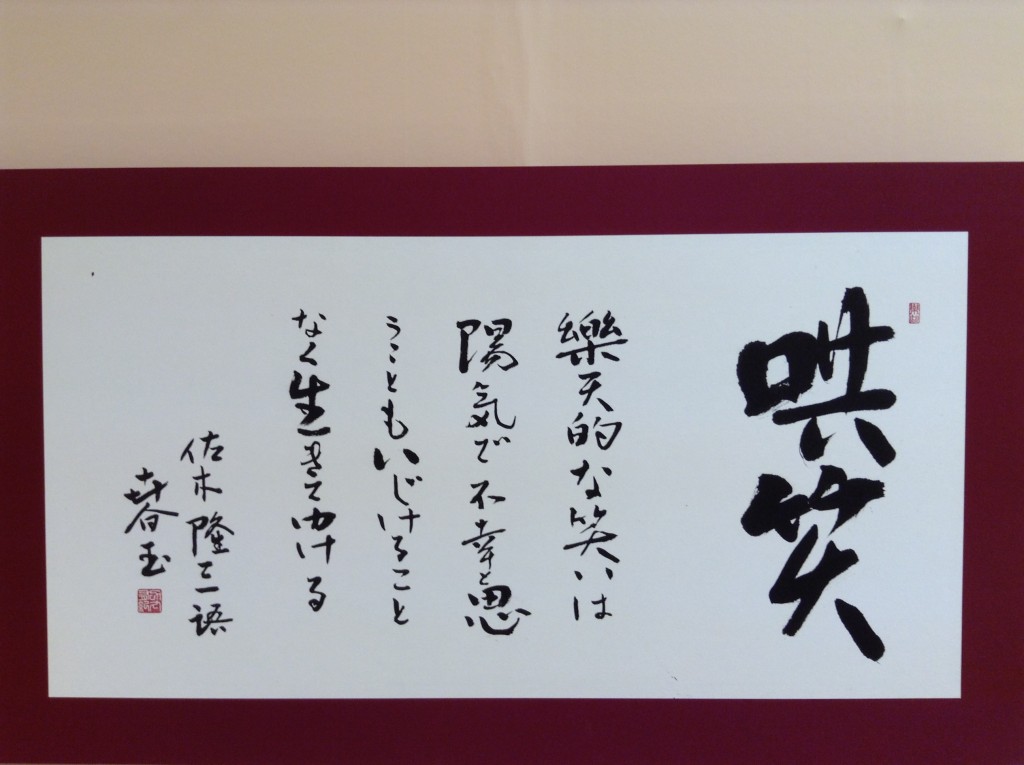 哄笑
樂天的な笑いは
陽気で不幸と思
うこともいじけること
なく生きてゆける
佐木隆三語